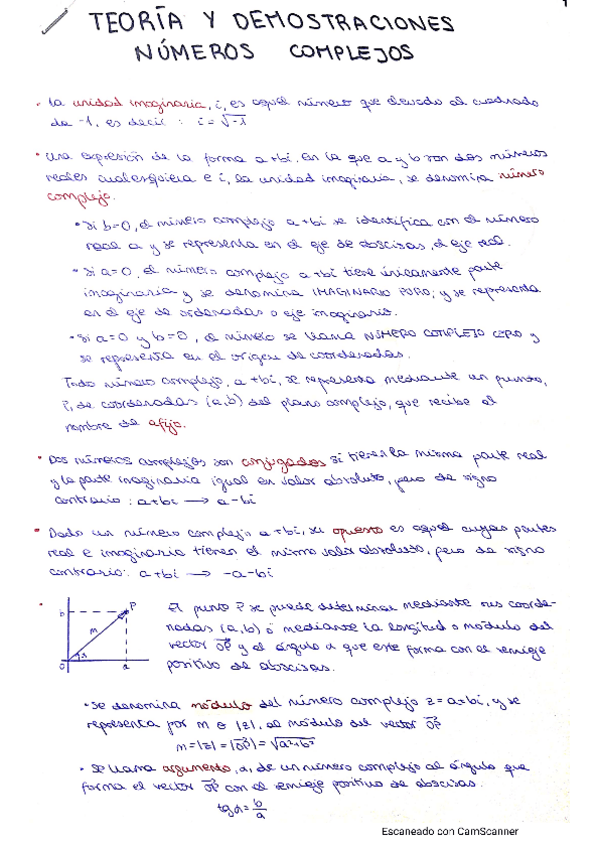 1
TEORÍA Y DEMOSTRACIONES
NÚMEROS COMPLEJOS
• La unidad imaginaria, i, es aquel número que elevado al cuadrado
da -1, es decir : i=√-1
• Una expresión de la forma a+bi, en la que a y b son dos números
reales cualesquiera e i, la unidad imaginaria, se denomina número
complejo.
• Si b=0, el número complejo a+bi se identifica con el número
real a y se representa en el eje de abscisas, el eje real.
• Si a=0, el número complejo a+bi tiene únicamente parte
imaginaria y se denomina IMAGINARIO PURO, y se representa
en el eje de ordenadas o eje imaginario.
• Si a=0 y b=0, el número se llama NÚMERO COMPLEJO CERO y
se representa en el origen de coordenadas.
Todo número complejo, a+bi, se representa mediante un punto,
P, de coordenadas (a,b) del plano complejo, que recibe el
nombre de afijo.
• Dos números complejos son conjugados si tienen la misma parte real
y la parte imaginaria igual en valor absoluto, pero de signo
contrario : a+bi → a-bi
• Dado un número complejo a+bi, su opuesto es aquel cuyas partes
real e imaginaria tienen el mismo valor absoluto, pero de signo
contrario: a+bi → -a-bi
b P
m
α
0 a
• El punto P se puede determinar mediante sus coorde-
nadas (a,b) ó mediante la longitud o módulo del
vector OP y el ángulo α que este forma con el semieje
positivo de abscisas.
• Se denomina módulo del número complejo z=a+bi, y se
representa por m o |z|, al módulo del vector OP
m=|z|=|OP|=√a²+b²
• Se llama argumento, α, de un número complejo al ángulo que
forma el vector OP con el semieje positivo de abscisas.
tg α = b/a
Escaneado con CamScanner